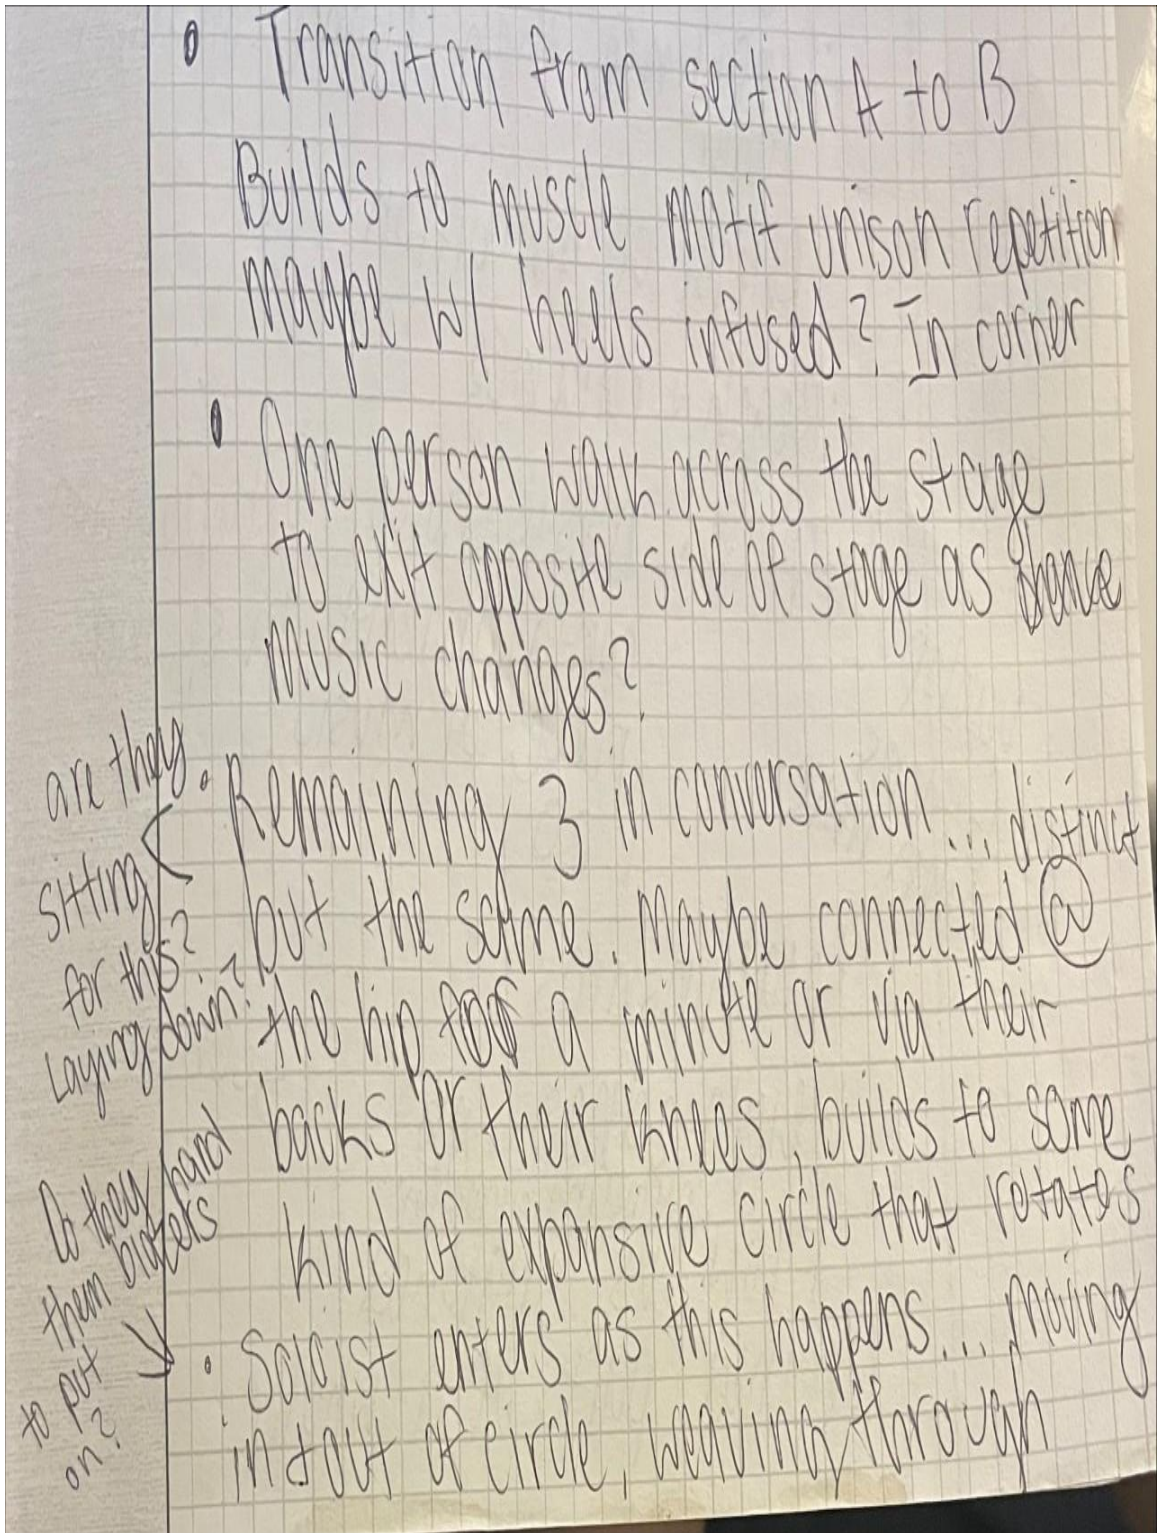 • Transition from section A to B
Builds to muscle motif unison repetition
maybe w/ heels infused? In corner
• One person walk across the stage
to exit opposite side of stage as
music changes?
• Remaining 3 in conversation... distinct
but the same. Maybe connected @
the hip for a minute or via their
backs or their knees, builds to some
kind of expansive circle that rotates
• Soloist enters as this happens... moving
in + out of circle, weaving through
are they
sitting
for this?
Laying down?
Do they hand
them blazers
to put
on?